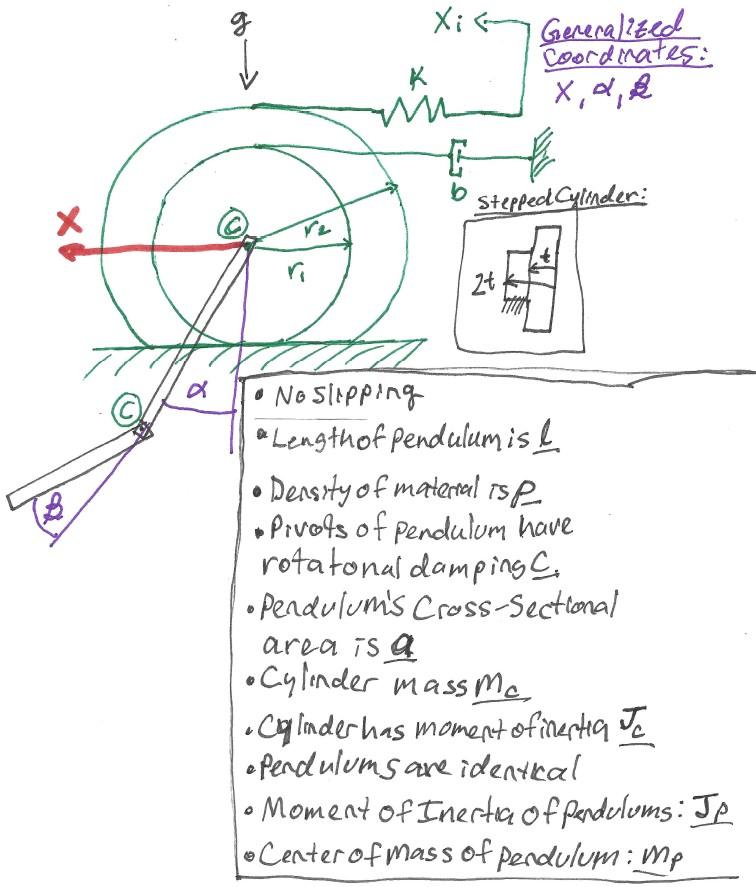 g
Xi
Generalized
Coordinates:
X, α, β
K
b
stepped Cylinder:
X
C
r2
r1
t
2t
α
C
β
• No slipping
• Length of pendulum is l
• Density of material is ρ
• Pivots of pendulum have
rotatonal damping C.
• Pendulum's Cross-Sectional
area is a
• Cylinder mass mc
• Cylinder has moment of inertia Jc
• Pendulums are identical
• Moment of Inertia of pendulums: Jp
• Center of Mass of pendulum: mp